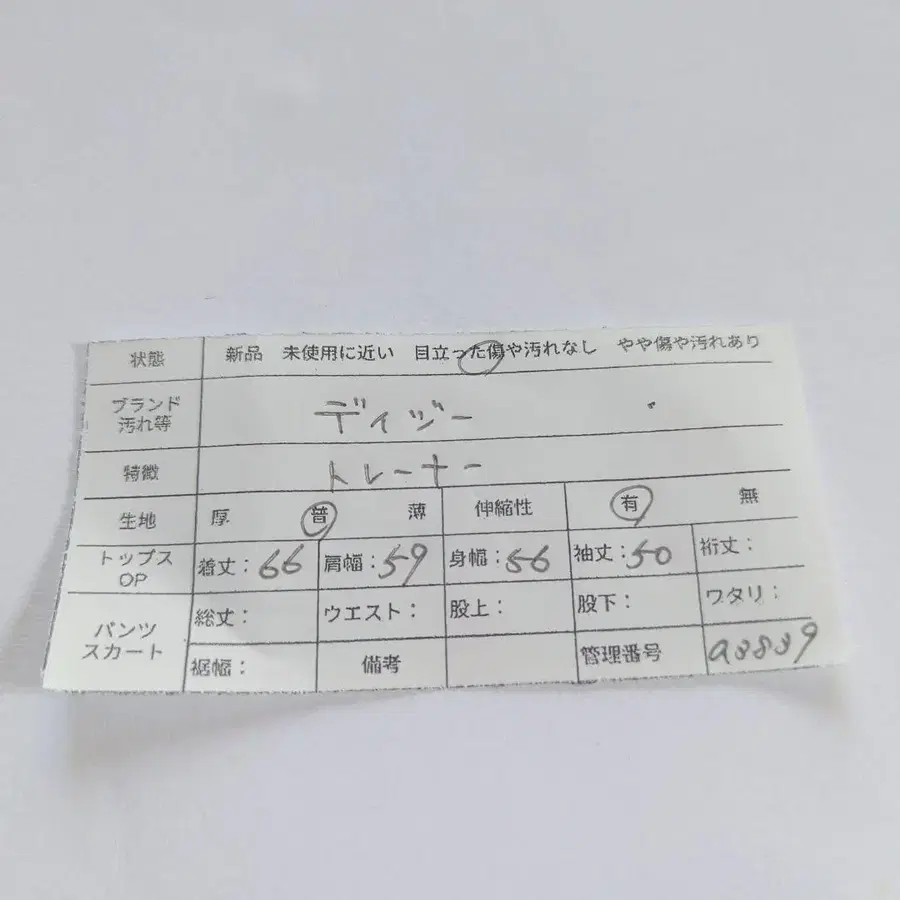 状態 新品 未使用に近い 目立った傷や汚れなし やや傷や汚れあり
ブランド
汚れ等
ディジー
特徴 トレーナー
生地 厚 普 薄 伸縮性 有 無
トップス
OP
着丈：66 肩幅：59 身幅：56 袖丈：50 裄丈：
パンツ
スカート
総丈： ウエスト： 股上： 股下： ワタリ：
裾幅： 備考 管理番号 a3839